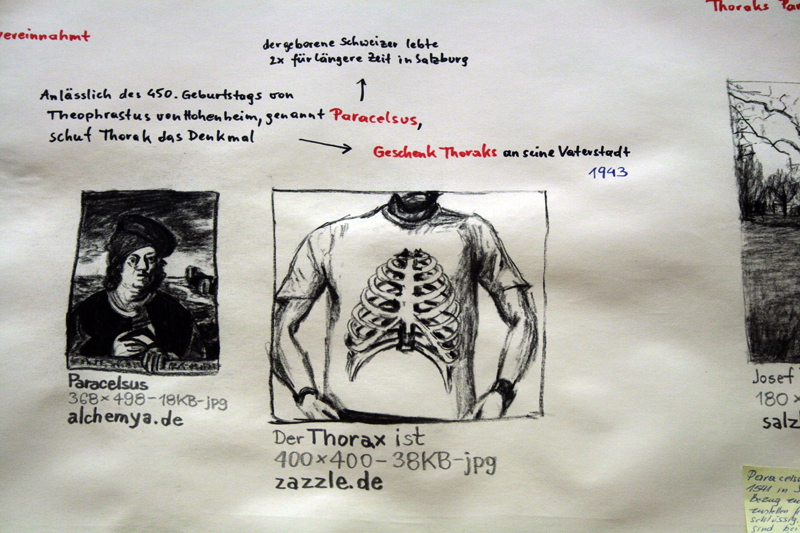 vereinnahmt
Thoraks
der geborene Schweizer lebte
2x für längere Zeit in Salzburg
Anlässlich des 450. Geburtstags von
Theophrastus von Hohenheim, genannt Paracelsus,
schuf Thorak das Denkmal
Geschenk Thoraks an seine Vaterstadt
1943
Paracelsus
368×498-18KB-jpg
alchemya.de
Der Thorax ist
400×400-38KB-jpg
zazzle.de
Josef
180×
salz
Paracels
1541 in
Bezug